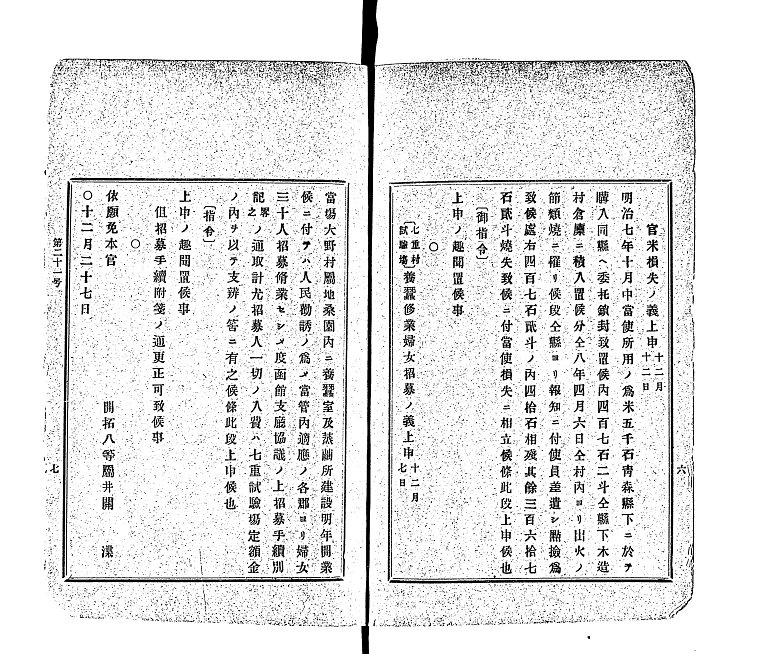 官米損失ノ義上申 十二月十二日
明治七年十月中當使所用ノ爲米五千石靑森縣下ニ於テ
購入同縣ヘ委托鎖封致置候內四百七石二斗仝縣下木造
村倉廩ニ積入置候分仝八年四月六日仝村內ヨリ出火ノ
節類燒ニ罹リ候段仝縣ヨリ報知ニ付使員差遣シ點撿爲
致候處右四百七石貳斗ノ內四拾石相殘其餘三百六拾七
石貳斗燒失致候ニ付當使損失ニ相立候條此段上申候也
〔御指令〕
上申ノ趣聞置候事
○
〔七重村試驗場〕養蠶修業婦女招募ノ義上申 十二月七日
六
當場大野村屬地桑園內ニ養蠶室及蒸繭所建設明年開業
候ニ付テハ人民勸誘ノ爲メ當管內適應ノ各郡ヨリ婦女
三十人招募脩業セシメ度函館支廳協議ノ上招募手續別
記畧之ノ通取計尤招募人一切ノ入費ハ七重試驗場定額金
ノ內ヲ以テ支辨ノ筈ニ有之候條此段上申候也
〔指令〕
上申ノ趣聞置候事
但招募手續附箋ノ通更正可致候事
○
依願免本官 開拓八等屬井關
○十二月二十七日
第二十一号
七